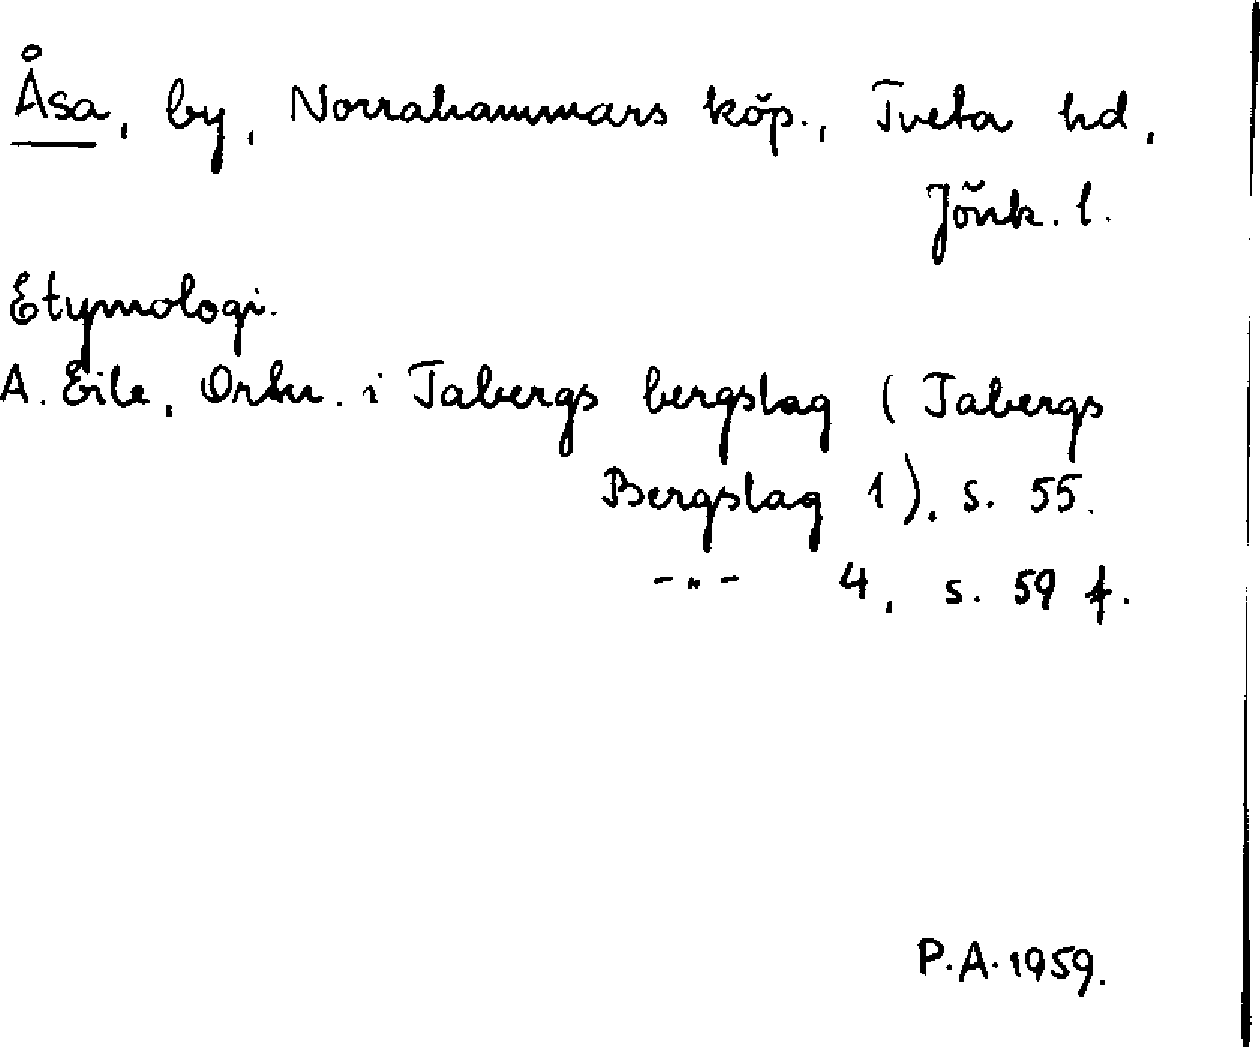 Åsa, by, Norrahammars köp., Tveta hd,
Jönk. l.
Etymologi.
A. Eile, Ortn. i Tabergs bergslag (Tabergs
Bergslag 1), s. 55.
-"- 4, s. 59 f.
P.A. 1959.